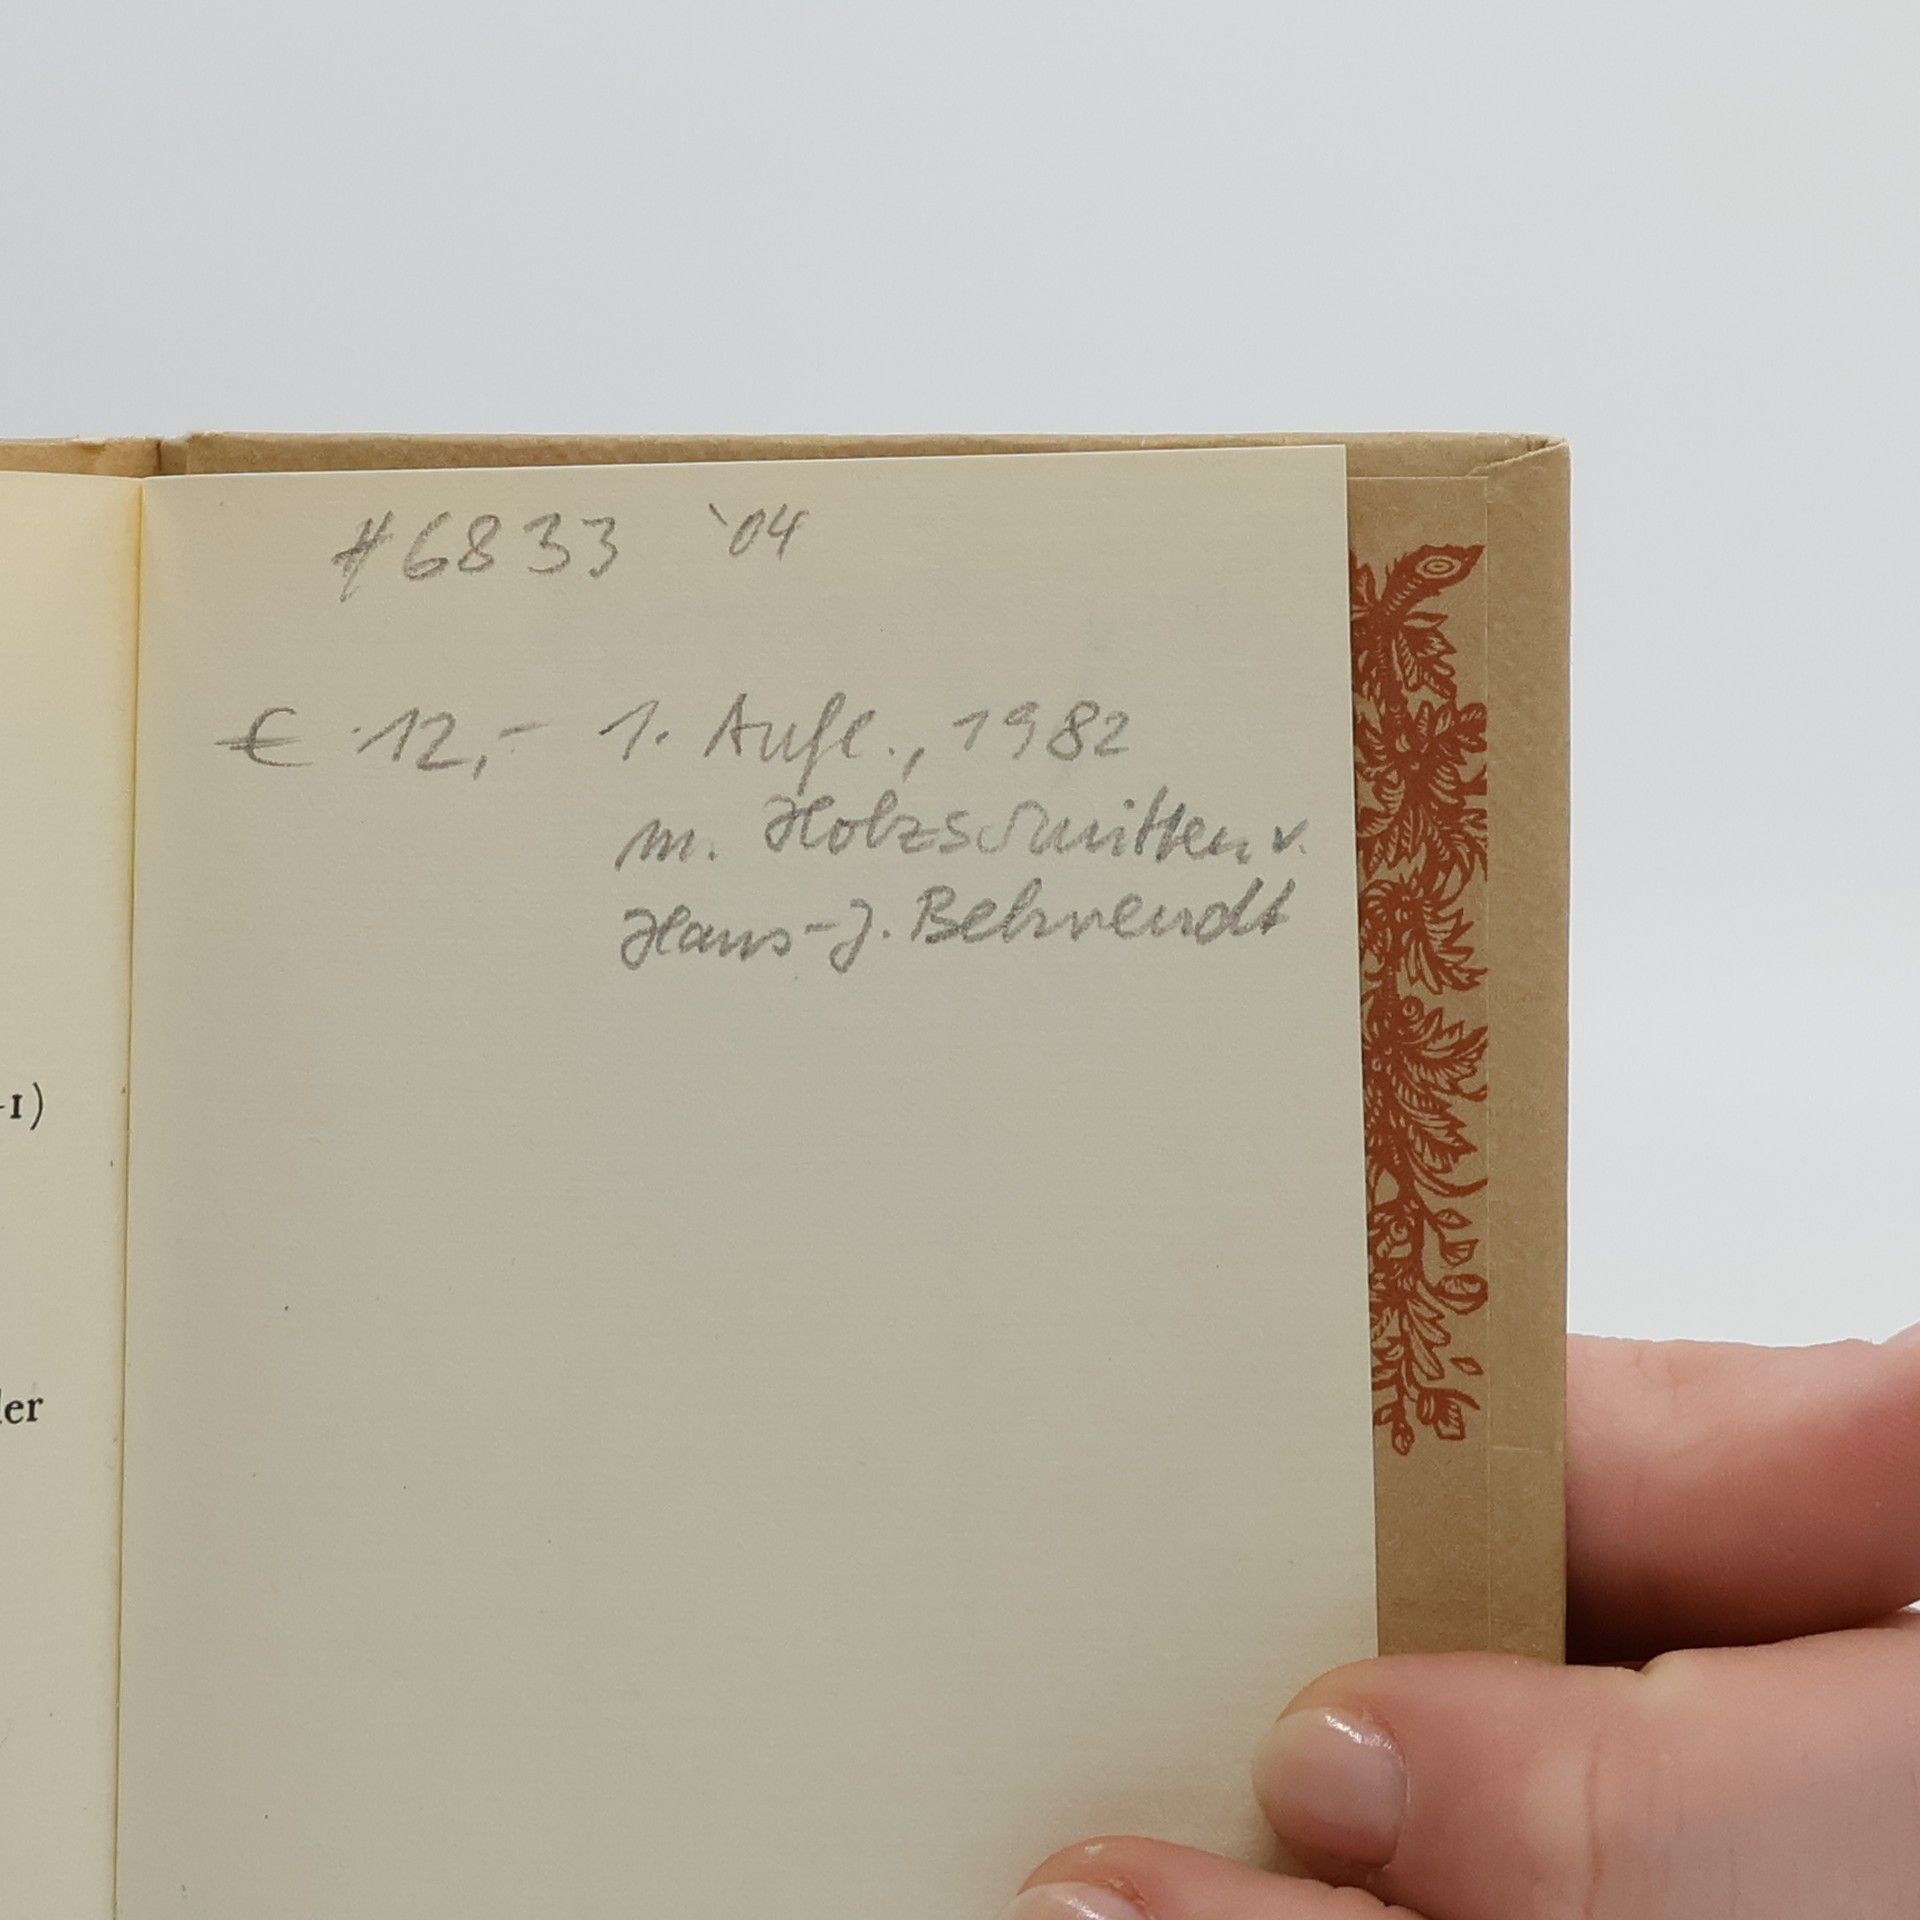 #6833 '04
€ 12,- 1. Aufl., 1982
m. Holzschnitten v.
Hans-J. Behrendt
-1)
ler